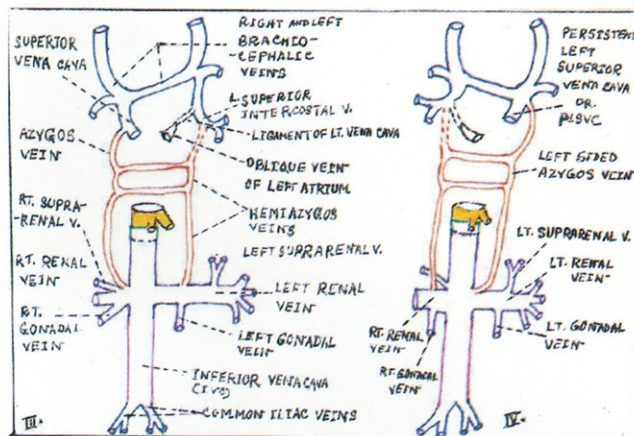 SUPERIOR
VENA CAVA
RIGHT AND LEFT
BRACHIO-
CEPHALIC
VEINS
L. SUPERIOR
INTERCOSTAL V.
LIGAMENT OF LT. VENA CAVA
AZYGOS
VEIN
OBLIQUE VEIN
OF LEFT ATRIUM
HEMIAZYGOS
VEINS
RT. SUPRA-
RENAL V.
LEFT SUPRARENAL V.
RT. RENAL
VEIN
LEFT RENAL
VEIN
RT.
GONADAL
VEIN
LEFT GONADAL
VEIN
INFERIOR VENACAVA
(IVC)
COMMON ILIAC VEINS
III.
PERSISTENT
LEFT
SUPERIOR
VENA CAVA
OR
PLSVC
LEFT SIDED
AZYGOS VEIN
LT. SUPRARENAL V.
LT. RENAL
VEIN
LT. GONADAL
VEIN
RT. RENAL
VEIN
RT. GONADAL
VEIN
IV.